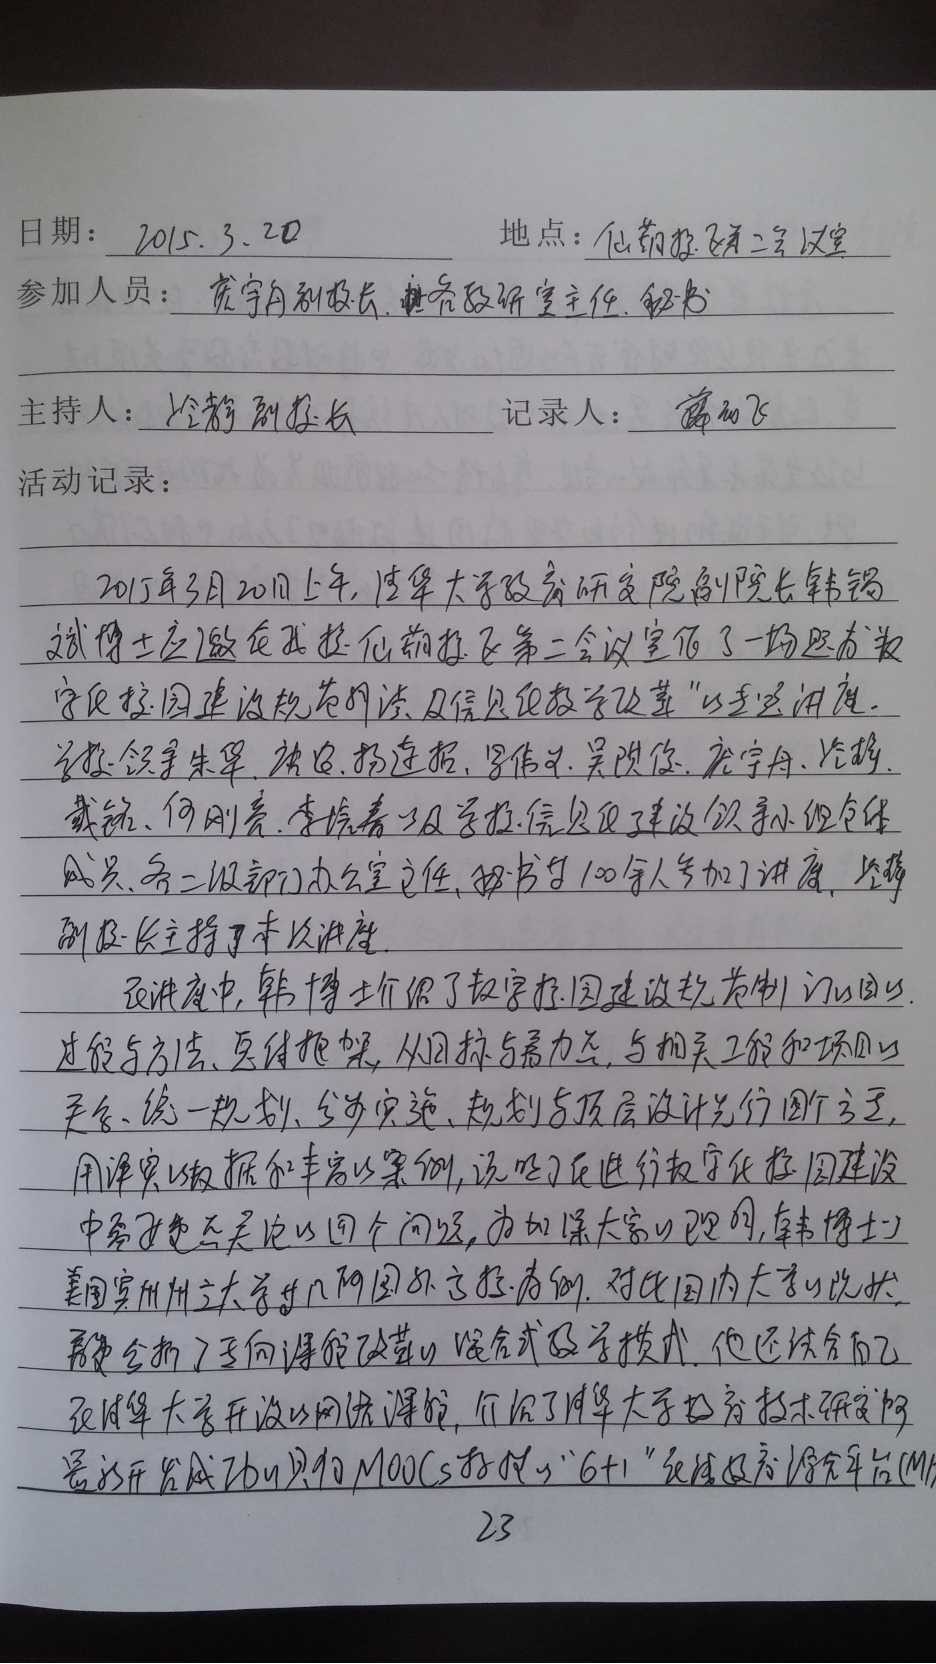 日期: 2015.3.20 地点: 仙葫校区第二会议室
参加人员: 庞宇舟副校长、各教研室主任、秘书
主持人: 冷静副校长 记录人:
活动记录:
2015年3月20日上午,清华大学教育研究院副院长韩锡
文斌博士应邀在我校仙葫校区第二会议室作了一场题为数
字化校园建设规范解读及信息化教学改革"的专题讲座。
学校领导朱华、唐农、杨连招、罗伟生、吴琪俊、庞宇舟、冷静、
戴铭、何刚亮、李培春以及学校信息化建设领导小组全体
成员、各二级部门办公室主任、秘书等100余人参加了讲座,冷静
副校长主持了本次讲座。
在讲座中,韩博士介绍了数字校园建设规范制订的目的、
过程与方法、总体框架,从目标与着力点,与相关工程和项目的
关系、统一规划、分步实施、规划与顶层设计先行四个方面,
用详实的数据和丰富的案例,说明了在进行数字化校园建设
中需要重点关注的四个问题,为加深大家的理解,韩博士以
美国宾州州立大学等几所国外高校为例,对比国内大学的现状,
分析了面向课程改革的混合式教学模式。他还结合自己
在清华大学开设的网络课程,介绍了清华大学教育技术研究所
最新开发成功的具有MOOCs特性的"6+1"在线教育综合平台(M
23